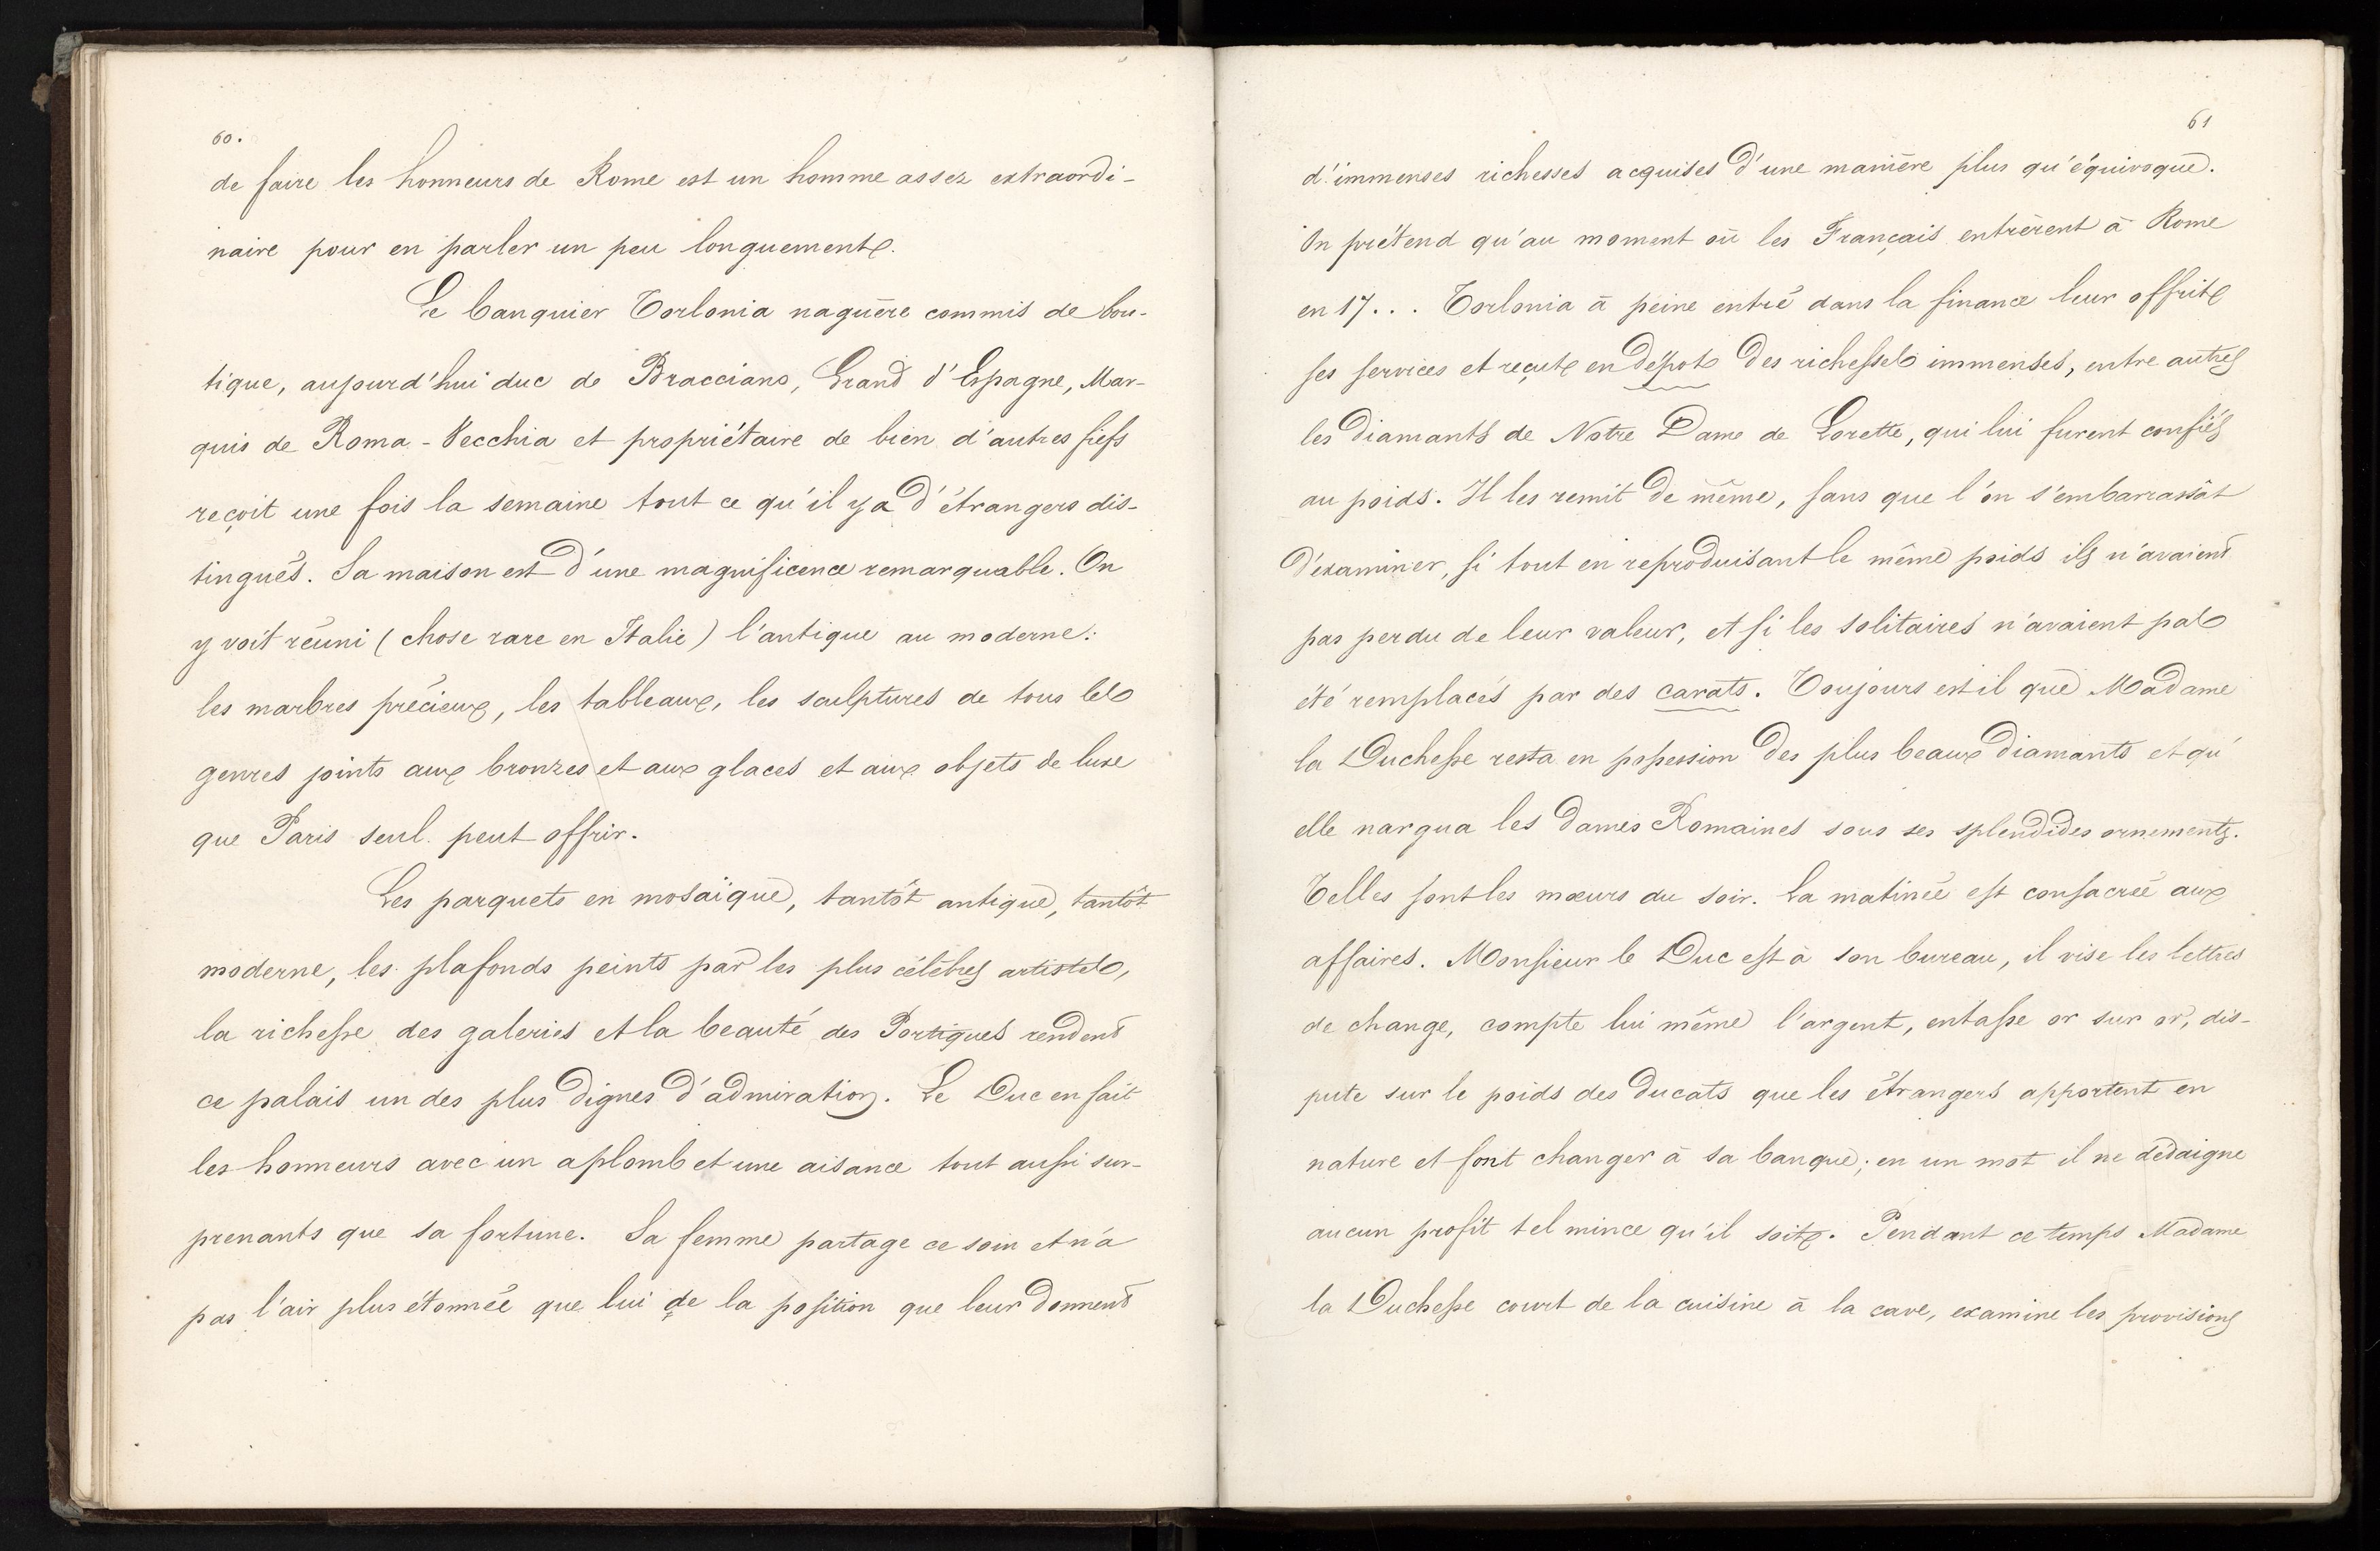 60.
de faire les honneurs de Rome est un homme assez extraordi-
naire pour en parler un peu longuement.
Le banquier Torlonia naguère commis de bou-
tique, aujourd'hui duc de Bracciano, Grand d'Espagne, Mar-
quis de Roma-Vecchia et propriétaire de bien d'autres fiefs
reçoit une fois la semaine tout ce qu'il y a d'étrangers dis-
tingués. Sa maison est d'une magnificence remarquable. On
y voit réuni (chose rare en Italie) l'antique au moderne:
les marbres précieux, les tableaux, les sculptures de tous les
genres joints aux bronzes et aux glaces et aux objets de luxe
que Paris seul peut offrir.
Les parquets en mosaïque, tantôt antique, tantôt
moderne, les plafonds peints par les plus célèbres artistes,
la richesse des galeries et la beauté des Portiques rendent
ce palais un des plus dignes d'admiration. Le Duc en fait
les honneurs avec un aplomb et une aisance tout aussi sur-
prenants que sa fortune. Sa femme partage ce soin et n'a
pas l'air plus étonnée que lui de la position que leur donnent
61
d'immenses richesses acquises d'une manière plus qu'équivoque.
On prétend qu'au moment où les Français entrèrent à Rome
en 17... Torlonia à peine entré dans la finance leur offrit
ses services et reçut en dépot des richesses immenses, entre autres
les diamants de Notre Dame de Lorette, qui lui furent confiés
au poids. Il les remit de même, sans que l'on s'embarrassât
d'examiner, si tout en reproduisant le même poids ils n'avaient
pas perdu de leur valeur, et si les solitaires n'avaient pas
été remplacés par des carats. Toujours est il que Madame
la Duchesse resta en possession des plus beaux diamants et qu'
elle nargua les dames Romaines sous ses splendides ornements.
Telles sont les mœurs du soir. La matinée est consacrée aux
affaires. Monsieur le Duc est à son bureau, il vise les lettres
de change, compte lui même l'argent, entasse or sur or, dis-
pute sur le poids des ducats que les étrangers apportent en
nature et font changer à sa banque; en un mot il ne dédaigne
aucun profit tel mince qu'il soit. Pendant ce temps Madame
la Duchesse court de la cuisine à la cave, examine les provisions